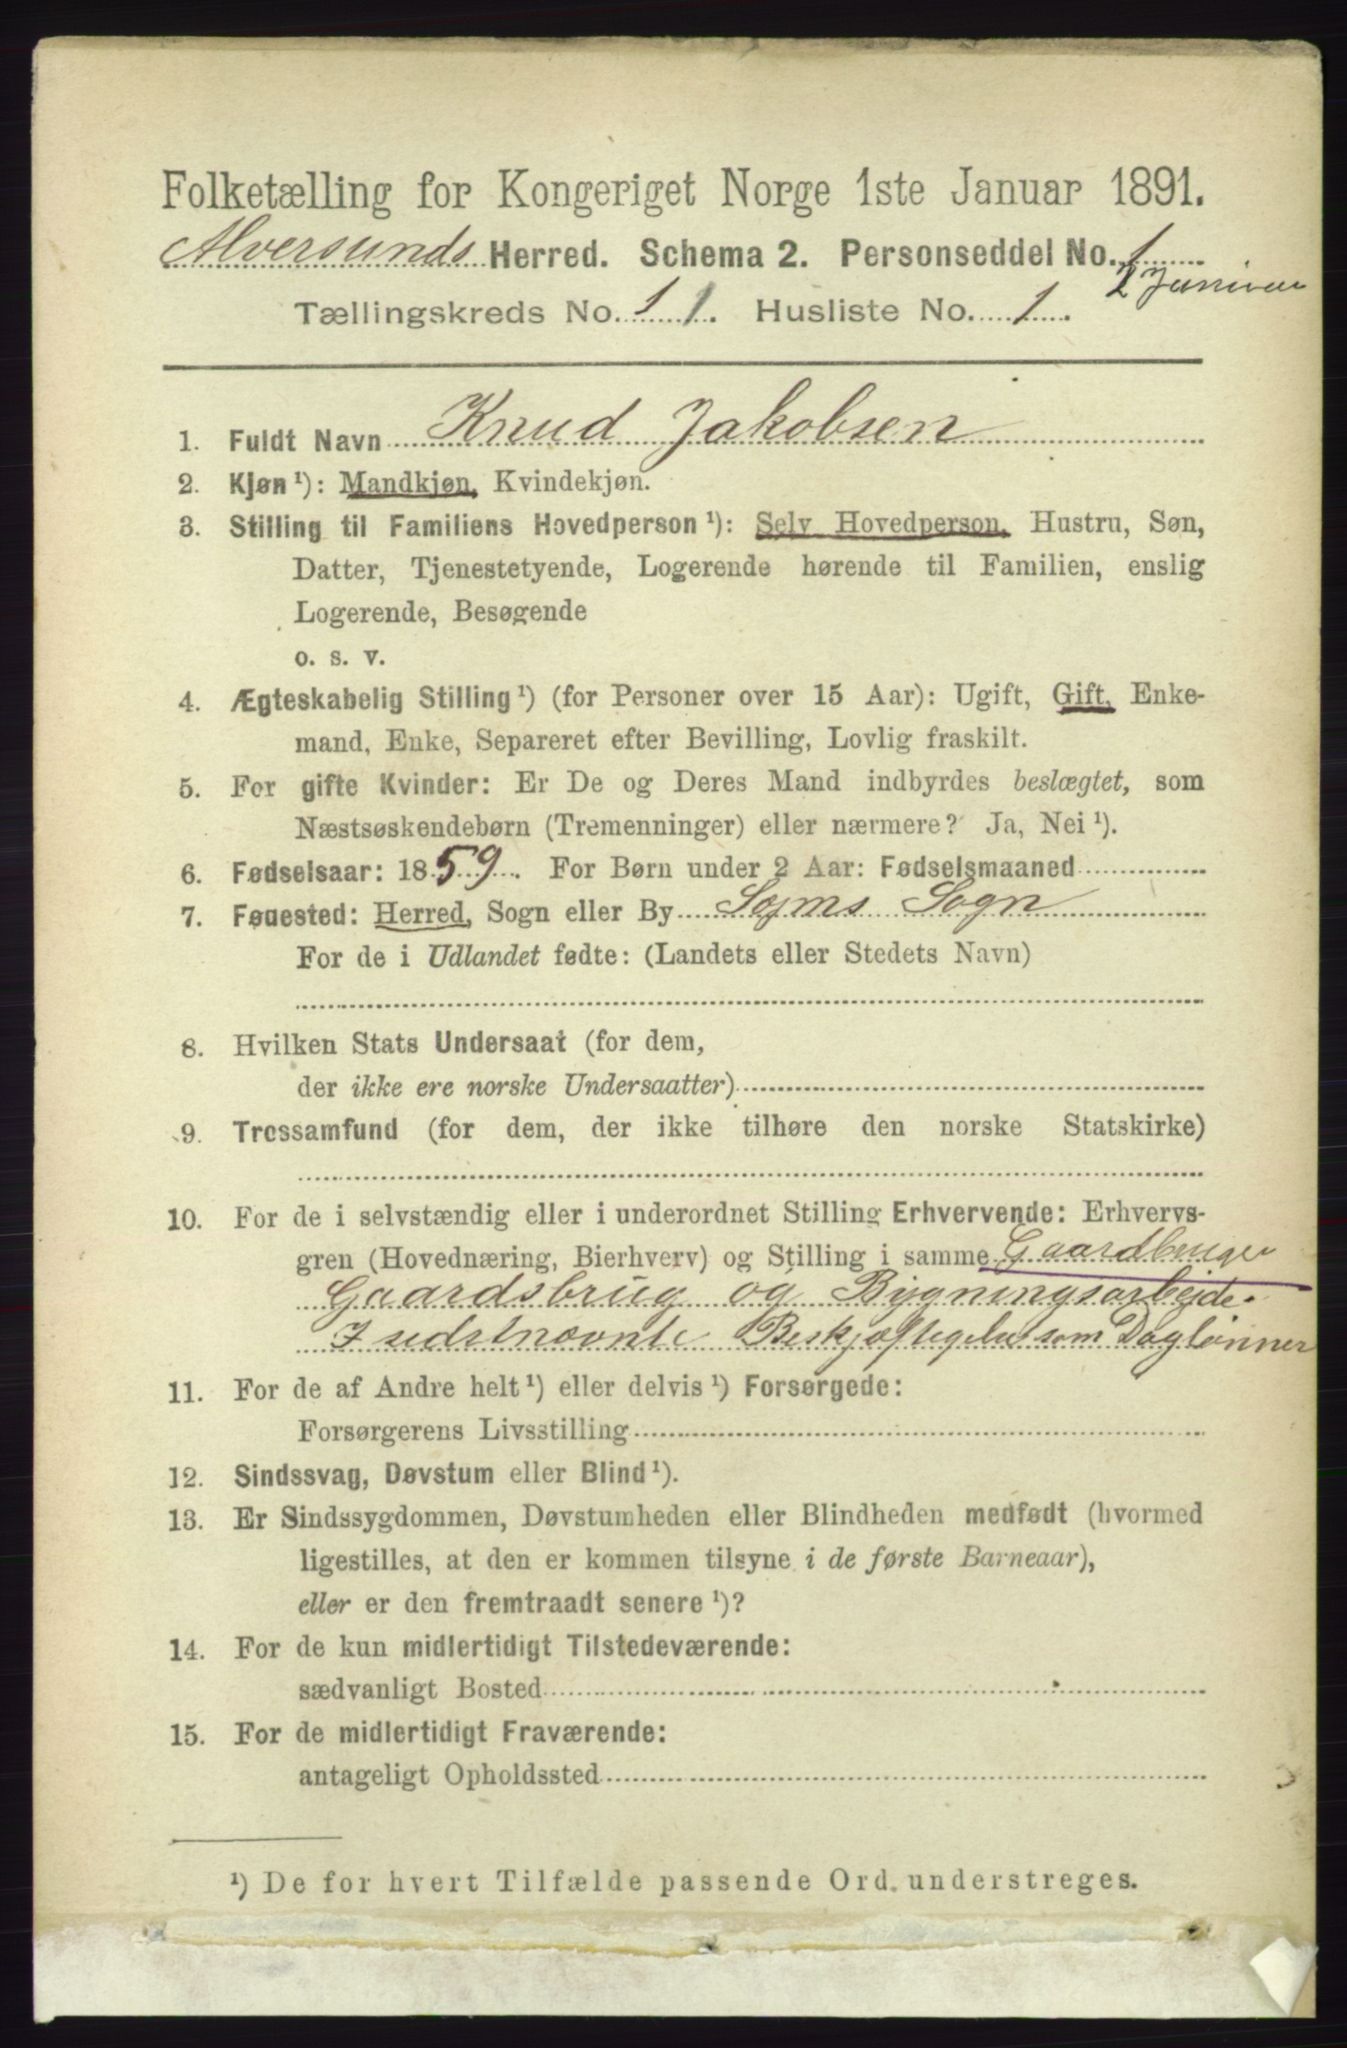 Folketælling for Kongeriget Norge 1ste Januar 1891.
Alversunds Herred. Schema 2. Personseddel No. 1
2 Januar
Tællingskreds No. 1 1. Husliste No. 1.
1. Fuldt Navn Knud Jakobsen
2. Kjøn ¹): Mandkjøn, Kvindekjøn.
3. Stilling til Familiens Hovedperson ¹): Selv Hovedperson, Hustru, Søn,
Datter, Tjenestetyende, Logerende hørende til Familien, enslig
Logerende, Besøgende
o. s. v.
4. Ægteskabelig Stilling ¹) (for Personer over 15 Aar): Ugift, Gift, Enke-
mand, Enke, Separeret efter Bevilling, Lovlig fraskilt.
5. For gifte Kvinder: Er De og Deres Mand indbyrdes beslægtet, som
Næstsøskendebørn (Tremenninger) eller nærmere? Ja, Nei ¹).
6. Fødselsaar: 1859. For Børn under 2 Aar: Fødselsmaaned
7. Føuested: Herred, Sogn eller By Sejms Sogn
For de i Udlandet fødte: (Landets eller Stedets Navn)
8. Hvilken Stats Undersaat (for dem,
der ikke ere norske Undersaatter)
9. Trossamfund (for dem, der ikke tilhøre den norske Statskirke)
10. For de i selvstændig eller i underordnet Stilling Erhvervende: Erhvervs-
gren (Hovednæring, Bierhverv) og Stilling i samme Gaardbruger
Gaardsbrug og Bygningsarbejde.
I sidstnævnte Beskjæftigelse som Daglønner
11. For de af Andre helt ¹) eller delvis ¹) Forsørgede:
Forsørgerens Livsstilling
12. Sindssvag, Døvstum eller Blind ¹).
13. Er Sindssygdommen, Døvstumheden eller Blindheden medfødt (hvormed
ligestilles, at den er kommen tilsyne i de første Barneaar),
eller er den fremtraadt senere ¹)?
14. For de kun midlertidigt Tilstedeværende:
sædvanligt Bosted
15. For de midlertidigt Fraværende:
antageligt Opholdssted
¹) De for hvert Tilfælde passende Ord understreges.